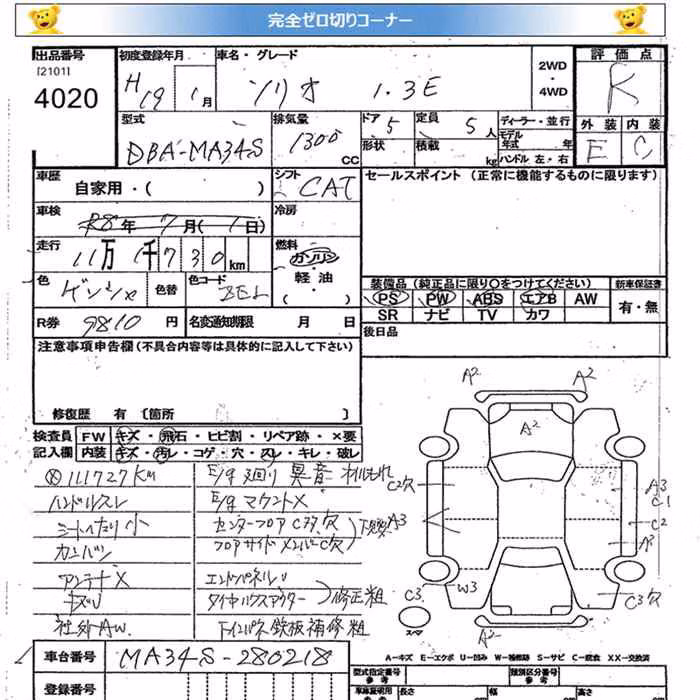 完全ゼロ切りコーナー
出品番号 初度登録年月 車名・グレード 2WD・4WD 評価点
[2101]
4020
H19年 1月 ソリオ 1.3E R
型式 排気量 ドア 定員 ディーラー・並行 外装 内装
DBA-MA34S 1300 CC 5 5人 モデル年式 年 E C
形状 積載 kg ハンドル 左・右
車歴 自家用・( ) シフト CAT セールスポイント (正常に機能するものに限ります)
車検 R8年 7月( 1日) 冷房
走行 11万1千730km 燃料 ガソリン・軽油・( )
色 ゲンシャ 色替 色コード ZEL
装備品 (純正品に限り○をつけてください) 新車保証書
PS PW ABS エアB AW 有・無
SR ナビ TV カワ
R券 9810円 名変通知期限 月 日 後日品
注意事項申告欄 (不具合内容等は具体的に記入して下さい)
修復歴 有 〔箇所 〕
検査員記入欄 FW キズ・飛石・ヒビ割・リペア跡・×要
内装 キズ・汚レ・コゲ・穴・スレ・キレ・破レ
111727km E/g廻り異音 オイルもれ
ハンドルスレ E/gマウントX
シートヘタリ小 センターフロアC穴
カンバン フロアサイドメンバーC穴
アンテナX エンドパネルU
キズU タイヤハウスアウター 修正粗
社外AW 鉄板補修粗
A2 A2
A2
C2穴 A3 C1
A3 C2
C3 W3 C3穴
スペア A2
A-キズ E-エクボ U-凹み W-補修跡 S-サビ C-腐食 XX-交換済
車台番号 MA34S-280218
登録番号
型式指定番号 参考 類別区分番号 参考
車庫証明用 参考 長さ 幅 高さ